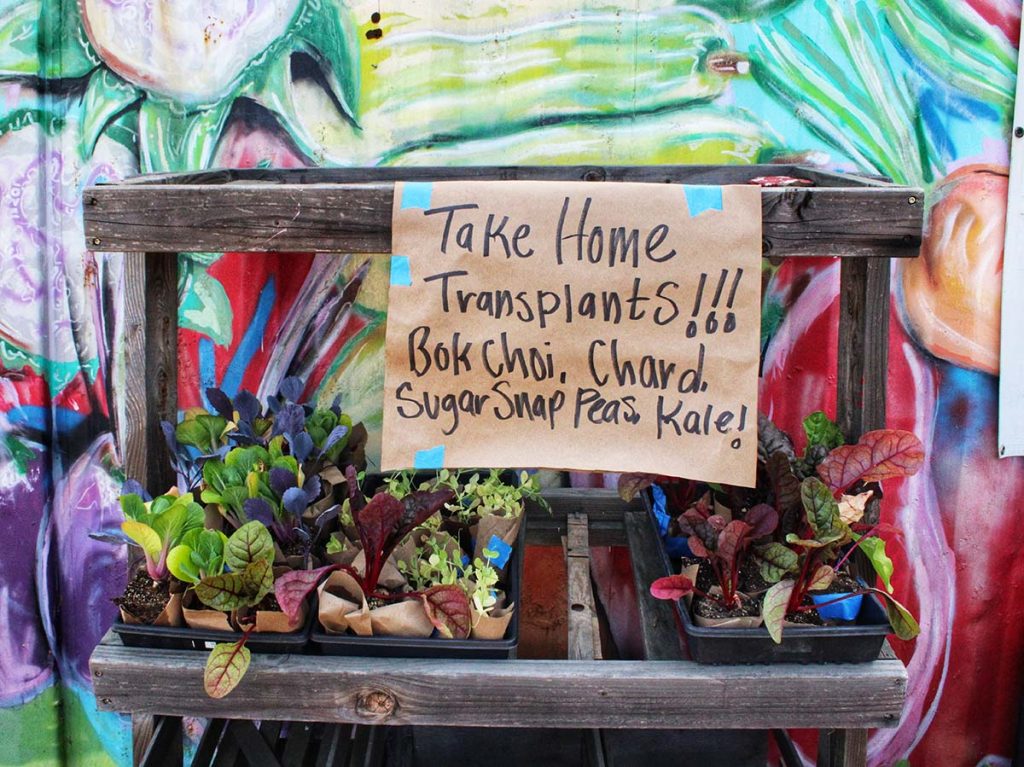 Take Home
Transplants!!!
Bok Choi, Chard,
Sugar Snap Peas, Kale!